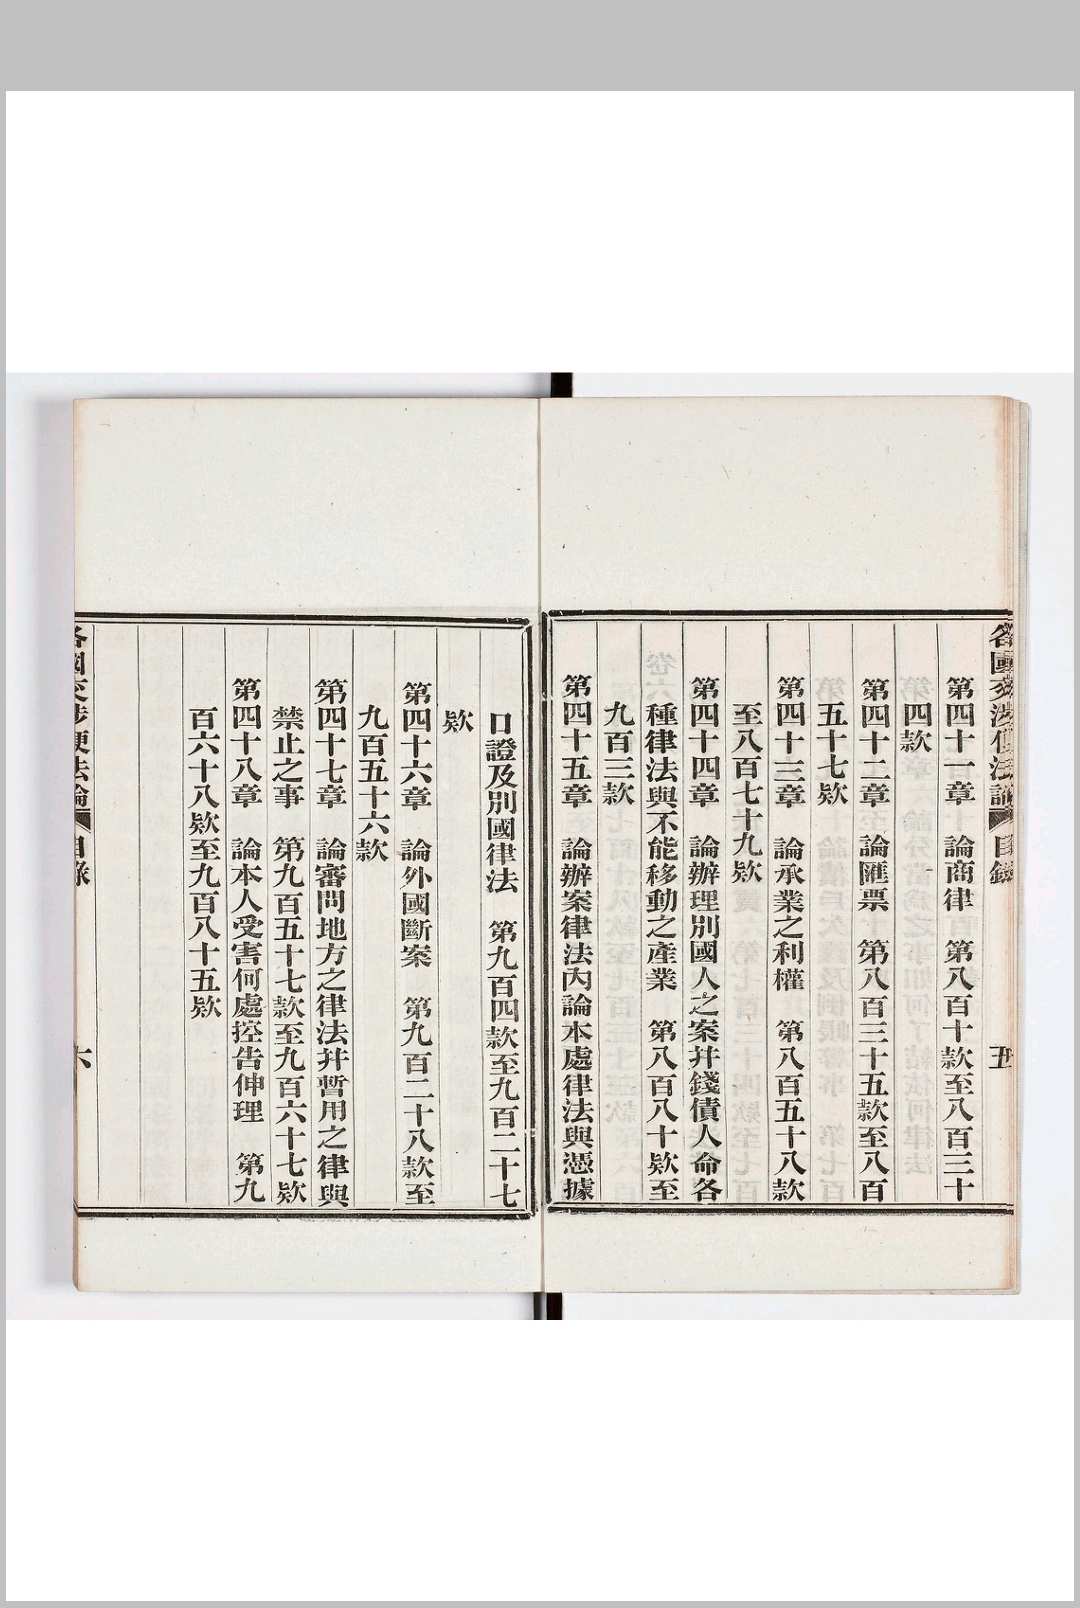 各國交涉便法論 目錄 五
第四十一章 論商律 第八百十款至八百三十
四款
第四十二章 論匯票 第八百三十五款至八百
五十七欵
第四十三章 論承業之利權 第八百五十八款
至八百七十九欵
第四十四章 論辦理別國人之案幷錢債人命各
種律法與不能移動之產業 第八百八十欵至
九百三款
第四十五章 論辦案律法內論本處律法與憑據
口證及別國律法 第九百四款至九百二十七
欵
第四十六章 論外國斷案 第九百二十八款至
九百五十六款
第四十七章 論審問地方之律法幷暫用之律與
禁止之事 第九百五十七款至九百六十七欵
第四十八章 論本人受害何處控告伸理 第九
百六十八欵至九百八十五欵
各國交涉便法論 目錄 六